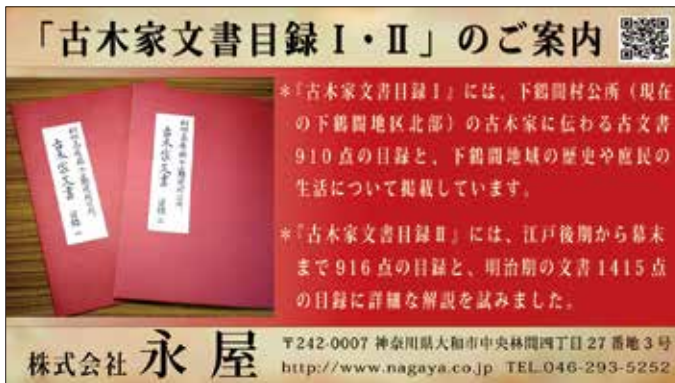 「古木家文書目録Ⅰ・Ⅱ」のご案内
＊『古木家文書目録Ⅰ』には、下鶴間村公所（現在
の下鶴間地区北部）の古木家に伝わる古文書
910点の目録と、下鶴間地域の歴史や庶民の
生活について掲載しています。
＊『古木家文書目録Ⅱ』には、江戸後期から幕末
まで916点の目録と、明治期の文書1415点
の目録に詳細な解説を試みました。
古木家文書
古木家文書
株式会社 永屋
〒242-0007 神奈川県大和市中央林間四丁目27番地3号
http://www.nagaya.co.jp TEL.046-293-5252